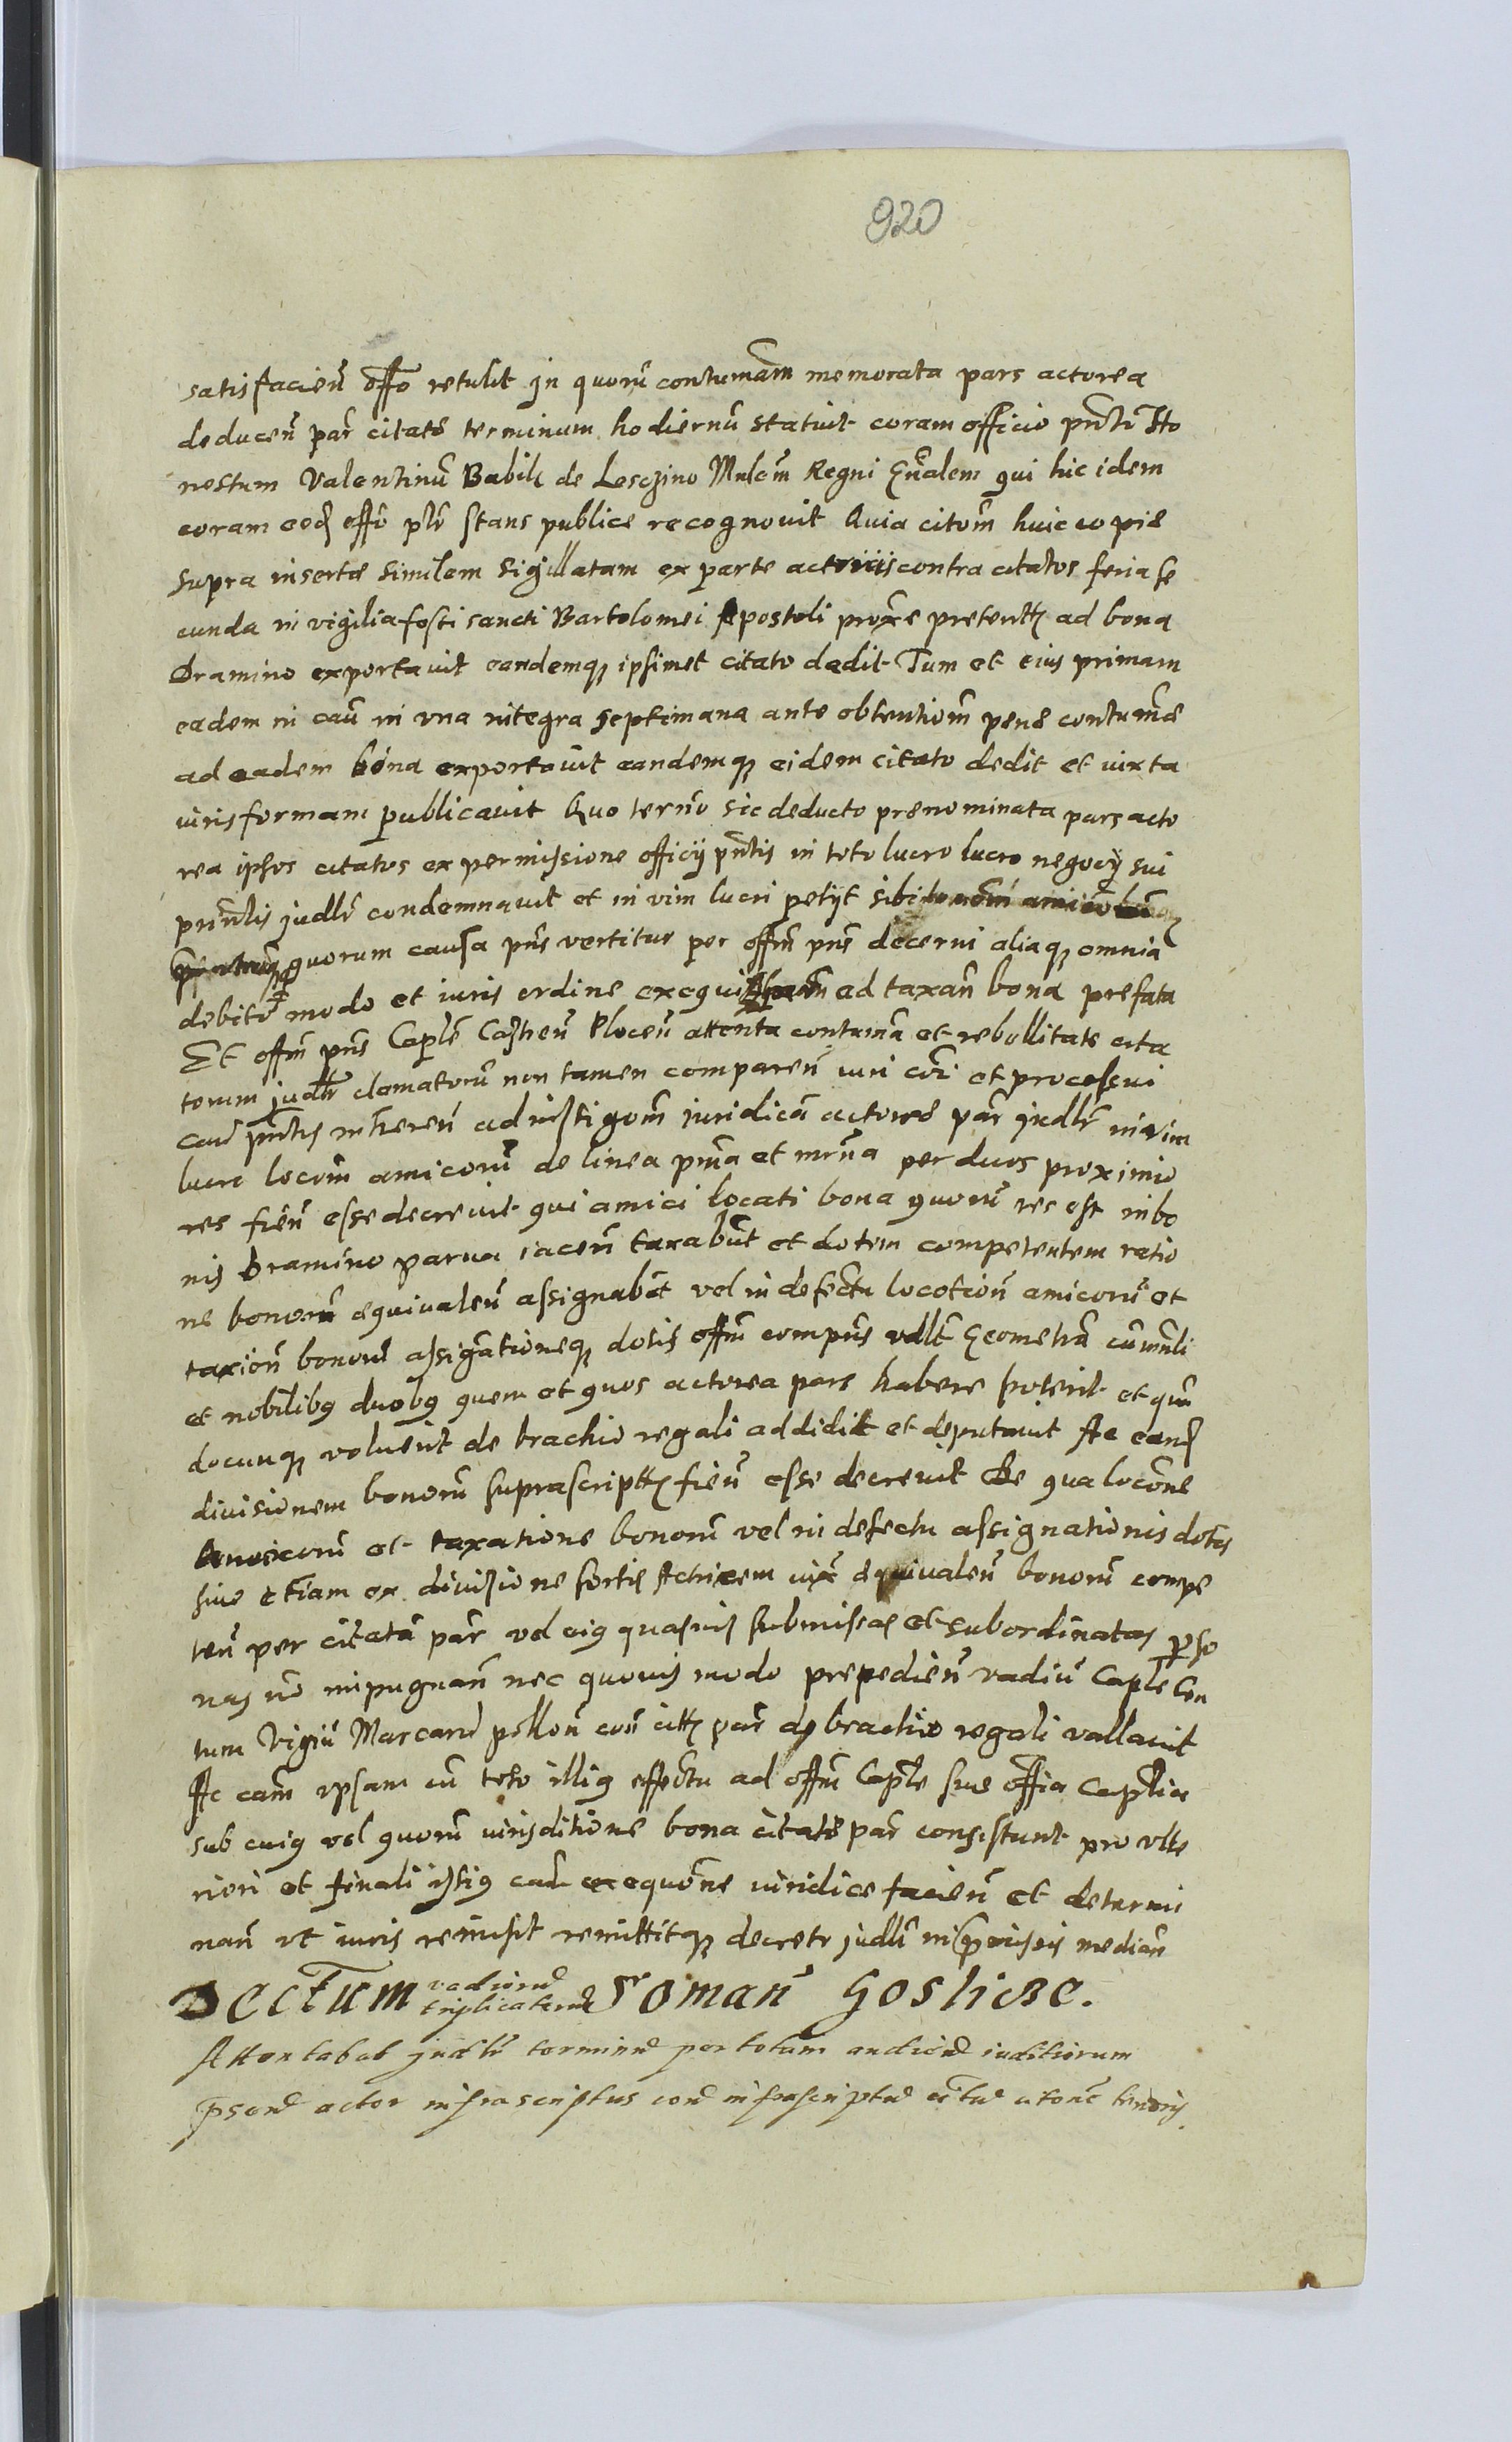 920
satisfacien̄ offo retulit In quorū contumām memorata pars actorea
deducen̄ par̄ citatę terminum hodiernū statuit coram officio pn̄ti Ho
nestum Valentinū Babik de Lesczino Mnlem̄ Regni Gn̄alem qui hic idem
coram eod offo pn̄ti stans publice recognouit Quia citōm huic copię
supra insertę similem sigillatam ex parte actricis contra citatos feria se
cunda in vigilia festi sancti Bartolomei Apostoli proxe preterit ad bona
Dramino exportauit eandemq ipsimet citato dedit Tum et eius primam
eadem in cau in vna integra septimana ante obtentiom̄ penę contumę
ad eadem bona exportauit eandemq eidem citato dedit et iuxta
iuris formam publicauit Quo termo sic deducto prenominata pars acto
rea ipsos citatos ex permissione officij pn̄tis in toto lucro lucro negocij sui
prn̄lis judlr condemnauit et in vim lucri petijt sibi
quorum causa pn̄s vertitur per offm pn̄s decerni aliaq omnia
debito modo et iuris ordine exequi ad taxan̄ bona prefata
Et offm pn̄s Capłe Castren̄ Plocen̄ attenta contuma et rebellitate cita
torum judlr clamatorū non tamen comparen̄ iuri coi et processui
caue pn̄tis inheren̄ ad instigom̄ iuridicā actoreę par̄ judlr in vim
lucri locom̄ amicorū de linea prn̄a et mrn̄a per duos proximio
res fien̄ esse decreuit qui amici locati bona quorū res est in bo
nis Dramino parua iacen̄ taxabūt et dotem competentem ratio
ne bonorū equiualen̄ assignabūt vel in defectu location̄ amicorū et
taxion̄ bonorū assignationeq dotis offm̄ comp̄ns vdlt Geometrā cū mnli
et nobilibus duobus quem et quos actorea pars habere poterit et quan
docunq voluerit de brachio regali addidit et deputauit Ac eand
diuisionem bonorū suprascript fien̄ esse decreuit De qua locone
Amicorū et taxatione bonorū vel in defectu assignationis dotis
siue etiam ex diuisione sortis Actricem iux equiualen̄ bonorū compe
ten̄ per citatā par̄ vel eius quasuis submissas et subordinatas perso
nas nō impugnan̄ nec quouis modo prepedien̄ vadiū Capłe Cen
tum Vigin̄ Marcarū pollon̄ con̄ citt par̄ de brachio regali vallauit
Ac cam̄ ipsam cū toto illius effectu ad offm̄ Capłe siue offia Capłia
sub cuius vel quorū iurisditione bona citatę par̄ consistunt pro vlte
riori et finali istius cau exequōne iuridice facien̄ et determi
nan̄ vt iuris remisit remittitq decreto judlr in premissis median̄
Dectum vadiorū triplicatarū Roman̄ Gosliczc.
Attentabat judlr terminū per totum audien iuditiorum
psend actor infrascriptus cond infrascriptū citū citonē tenoris